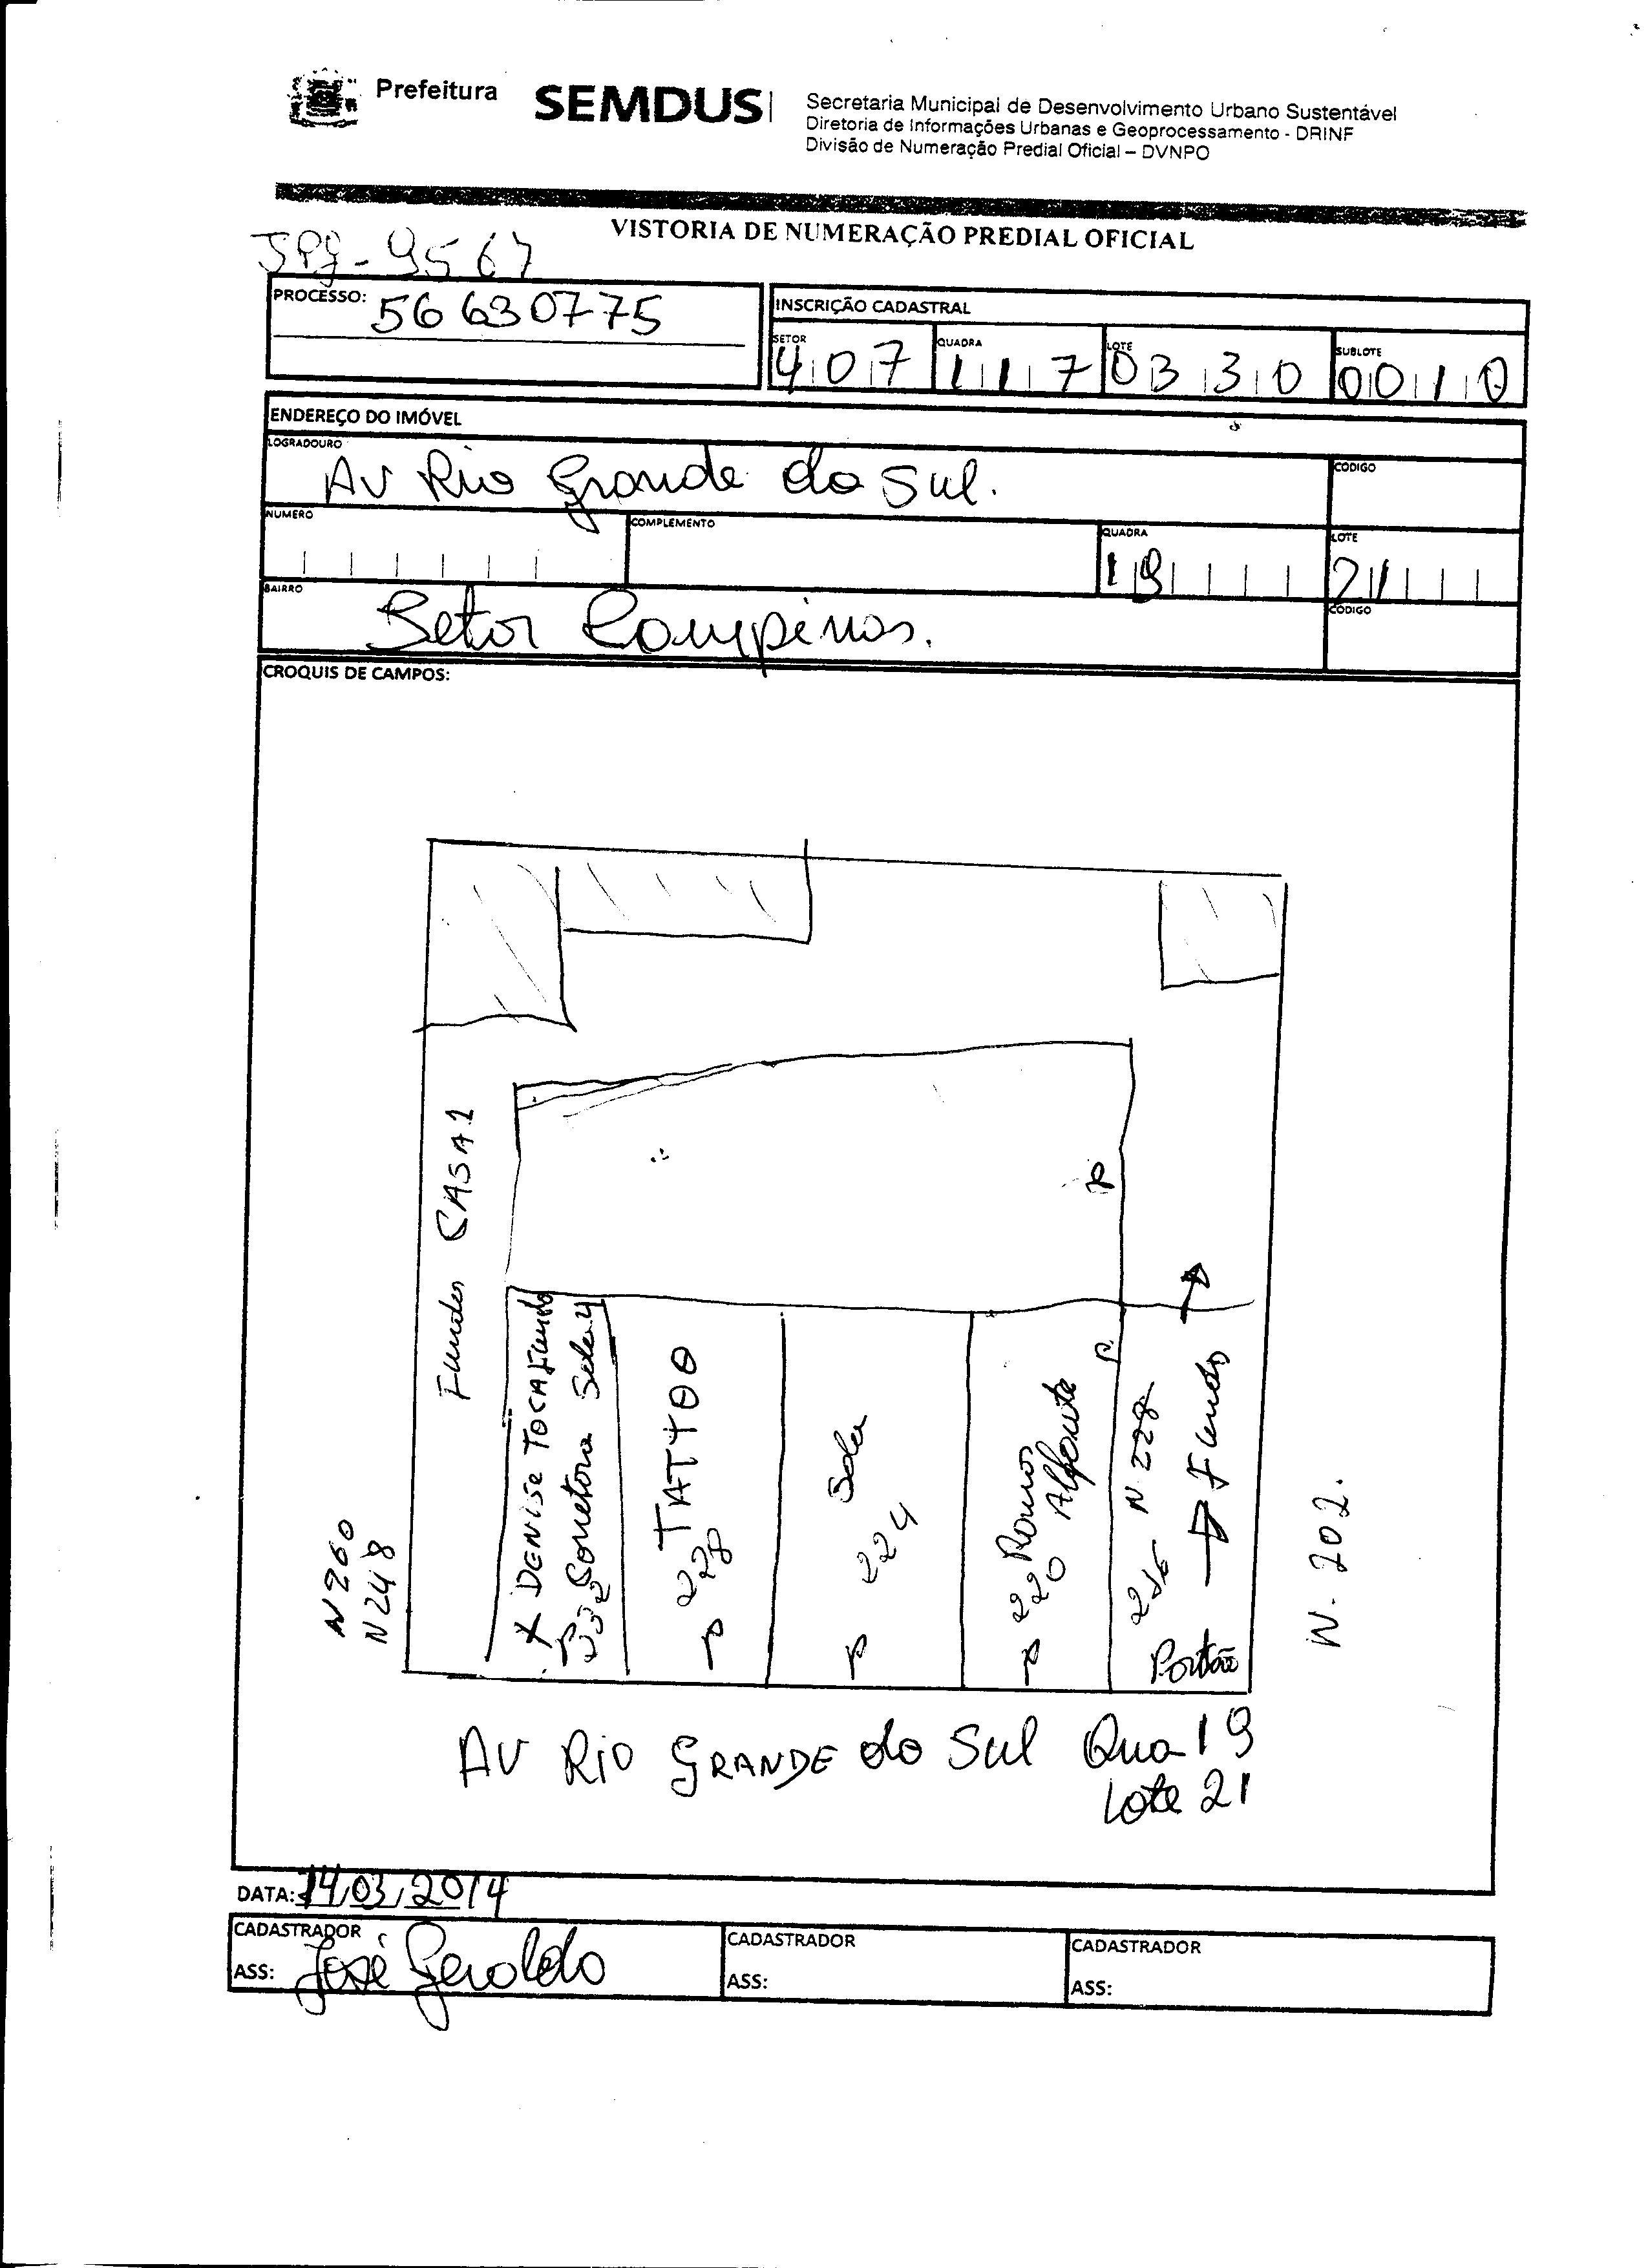 Prefeitura
SEMDUS
Secretaria Municipal de Desenvolvimento Urbano Sustentável
Diretoria de Informações Urbanas e Geoprocessamento - DRINF
Divisão de Numeração Predial Oficial – DVNPO
VISTORIA DE NUMERAÇÃO PREDIAL OFICIAL
JPG-9567
PROCESSO: 56630775
INSCRIÇÃO CADASTRAL
SETOR 407 QUADRA 117 LOTE 0330 SUBLOTE 0010
ENDEREÇO DO IMÓVEL
LOGRADOURO
Av Rio Grande do Sul.
CÓDIGO
NUMERO
COMPLEMENTO
QUADRA 19
LOTE 21
BAIRRO
Setor Campinas.
CÓDIGO
CROQUIS DE CAMPOS:
Fundos CASA 1
N 260
N 248
X DENISE TOCAFUNDO
P 232 Corretora Sala 4
TATTOO
P 228
Sala
224
P
P 220 Alfonte
P
P
216 N 228
Fundos
Portão
N. 202.
AV RIO GRANDE do Sul Qua 19
Lote 21
DATA: 14/03/2014
CADASTRADOR
ASS: José Geraldo
CADASTRADOR
ASS:
CADASTRADOR
ASS: